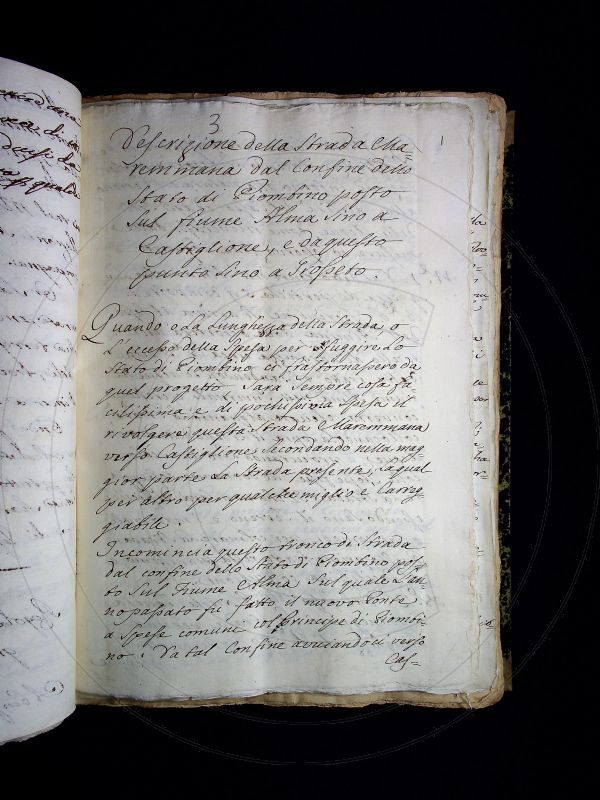 3
1
Descrizione della Strada Ma=
remmana dal Confine dello
Stato di Piombino posto
sul fiume Alma sino a
Castiglione, e da questo
punto sino a
Quando o la lunghezza della strada, o
l'eccesso della spesa per sfuggire lo
Stato di Piombino ci frastornassero da
quel progetto sarà sempre cosa fa
cilissima, e di pochissima spesa il
rivolgere questa strada Maremmana
verso Castiglione secondando nella mag=
gior parte la strada presente, la qual
per altro per qualche miglio è Carreg=
giabile.
Incomincia questo tronco di strada
dal confine dello Stato di Piombino pos=
to sul fiume Alma sul quale l'an=
no passato fu fatto il nuovo Ponte
a spese comuni col Principe di Piombi=
no. Da tal Confine avviandoci verso
Cas=